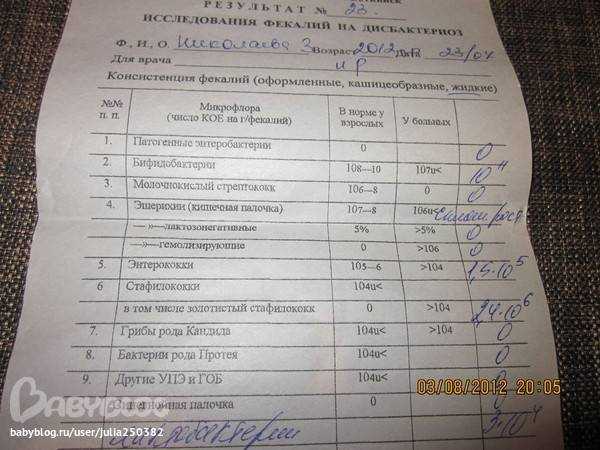 РЕЗУЛЬТАТ № 23.
ИССЛЕДОВАНИЯ ФЕКАЛИЙ НА ДИСБАКТЕРИОЗ
Ф., И., О. Николаева З Возраст 2012 Дата 23/04
Для врача
Консистенция фекалий (оформленные, кашицеобразные, жидкие)
№№ п. п. Микрофлора (число КОЕ на г/фекалий) В норме у взрослых У больных
1. Патогенные энтеробактерии 0 0
2. Бифидобактерии 108—10 107и< 10
3. Молочнокислый стрептококк 106—8 0 0
4. Эшерихии (кишечная палочка) 107—8 106и< сплош. рост
— »—лактозонегативные 5% >5% 0
—»—гемолизирующие 0 >106 0
5. Энтерококки 105—6 >104 1,5·10⁵
6 Стафилококки 104и<
в том числе золотистый стафилококк 0 >104 2,4·10⁶
7. Грибы рода Кандида 104и< >104 0
8. Бактерии рода Протея 104и< 0
9. Другие УПЭ и ГОБ 104и< 0
Синегнойная палочка 0 0
03/08/2012 20:05
BABYBLOG
babyblog.ru/user/julia250382